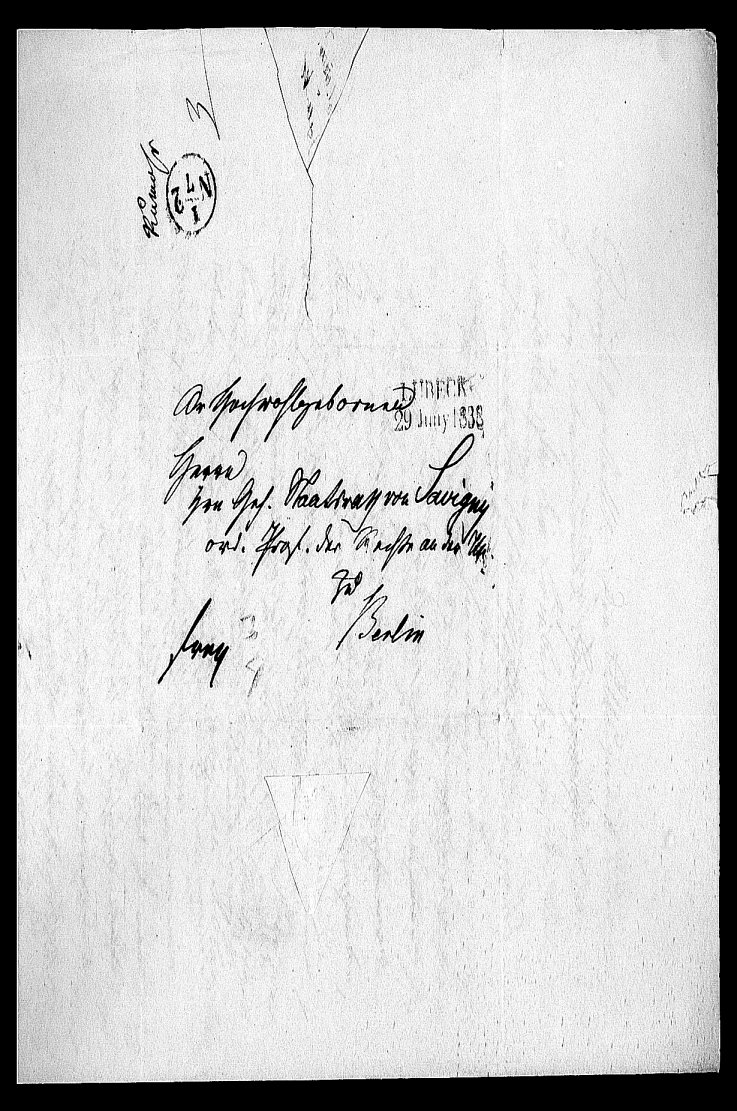 3
Rumohr
N 1/7 2
Sr Hochwohlgebornen
LUBECK
29 Juny 1838
Herrn
Hrn Geh. Staatsrath von Savigny
ord. Prof. der Rechte an der
zu
Berlin
frey